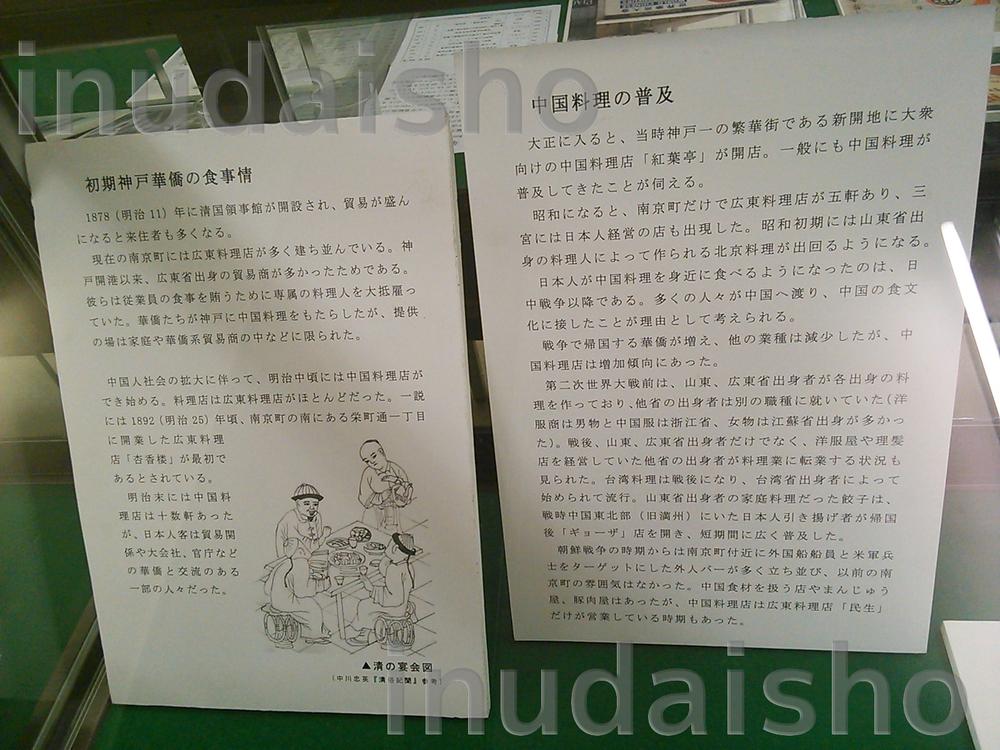 inudaisho
初期神戸華僑の食事情
1878（明治11）年に清国領事館が開設され、貿易が盛ん
になると来住者も多くなる。
現在の南京町には広東料理店が多く建ち並んでいる。神
戸開港以来、広東省出身の貿易商が多かったためである。
彼らは従業員の食事を賄うために専属の料理人を大抵雇っ
ていた。華僑たちが神戸に中国料理をもたらしたが、提供
の場は家庭や華僑系貿易商の中などに限られた。
中国人社会の拡大に伴って、明治中頃には中国料理店が
でき始める。料理店は広東料理店がほとんどだった。一説
には1892（明治25）年頃、南京町の南にある栄町通一丁目
に開業した広東料理
店「杏香楼」が最初で
あるとされている。
明治末には中国料
理店は十数軒あった
が、日本人客は貿易関
係や大会社、官庁など
の華僑と交流のある
一部の人々だった。
▲清の宴会図
（中川忠英『清俗紀聞』参考）
中国料理の普及
大正に入ると、当時神戸一の繁華街である新開地に大衆
向けの中国料理店「紅葉亭」が開店。一般にも中国料理が
普及してきたことが伺える。
昭和になると、南京町だけで広東料理が五軒あり、三
宮には日本人経営の店も出現した。昭和初期には山東省出
身の料理人によって作られる北京料理が出回るようになる。
日本人が中国料理を身近に食べるようになったのは、日
中戦争以降である。多くの人々が中国へ渡り、中国の食文
化に接したことが理由として考えられる。
戦争で帰国する華僑が増え、他の業種は減少したが、中
国料理店は増加傾向にあった。
第二次世界大戦前は、山東、広東省出身者が各出身の料
理を作っており、他省の出身者は別の職種に就いていた（洋
服商は男物と中国服は浙江省、女物は江蘇省出身が多かっ
た）。戦後、山東、広東省出身者だけでなく、洋服屋や理髪
店を経営していた他省の出身者が料理業に転業する状況も
見られた。台湾料理は戦後になり、台湾省出身者によって
始められて流行。山東省出身者の家庭料理だった餃子は、
戦時中国東北部（旧満州）にいた日本人引き揚げ者が帰国
後「ギョーザ」店を開き、短期間に広く普及した。
朝鮮戦争の時期からは南京町付近に外国船船員と米軍兵
士をターゲットにした外人バーが多く立ち並び、以前の南
京町の雰囲気はなかった。中国食材を扱う店やまんじゅう
屋、豚肉屋はあったが、中国料理店は広東料理店「民生」
だけが営業している時期もあった。
inudaisho